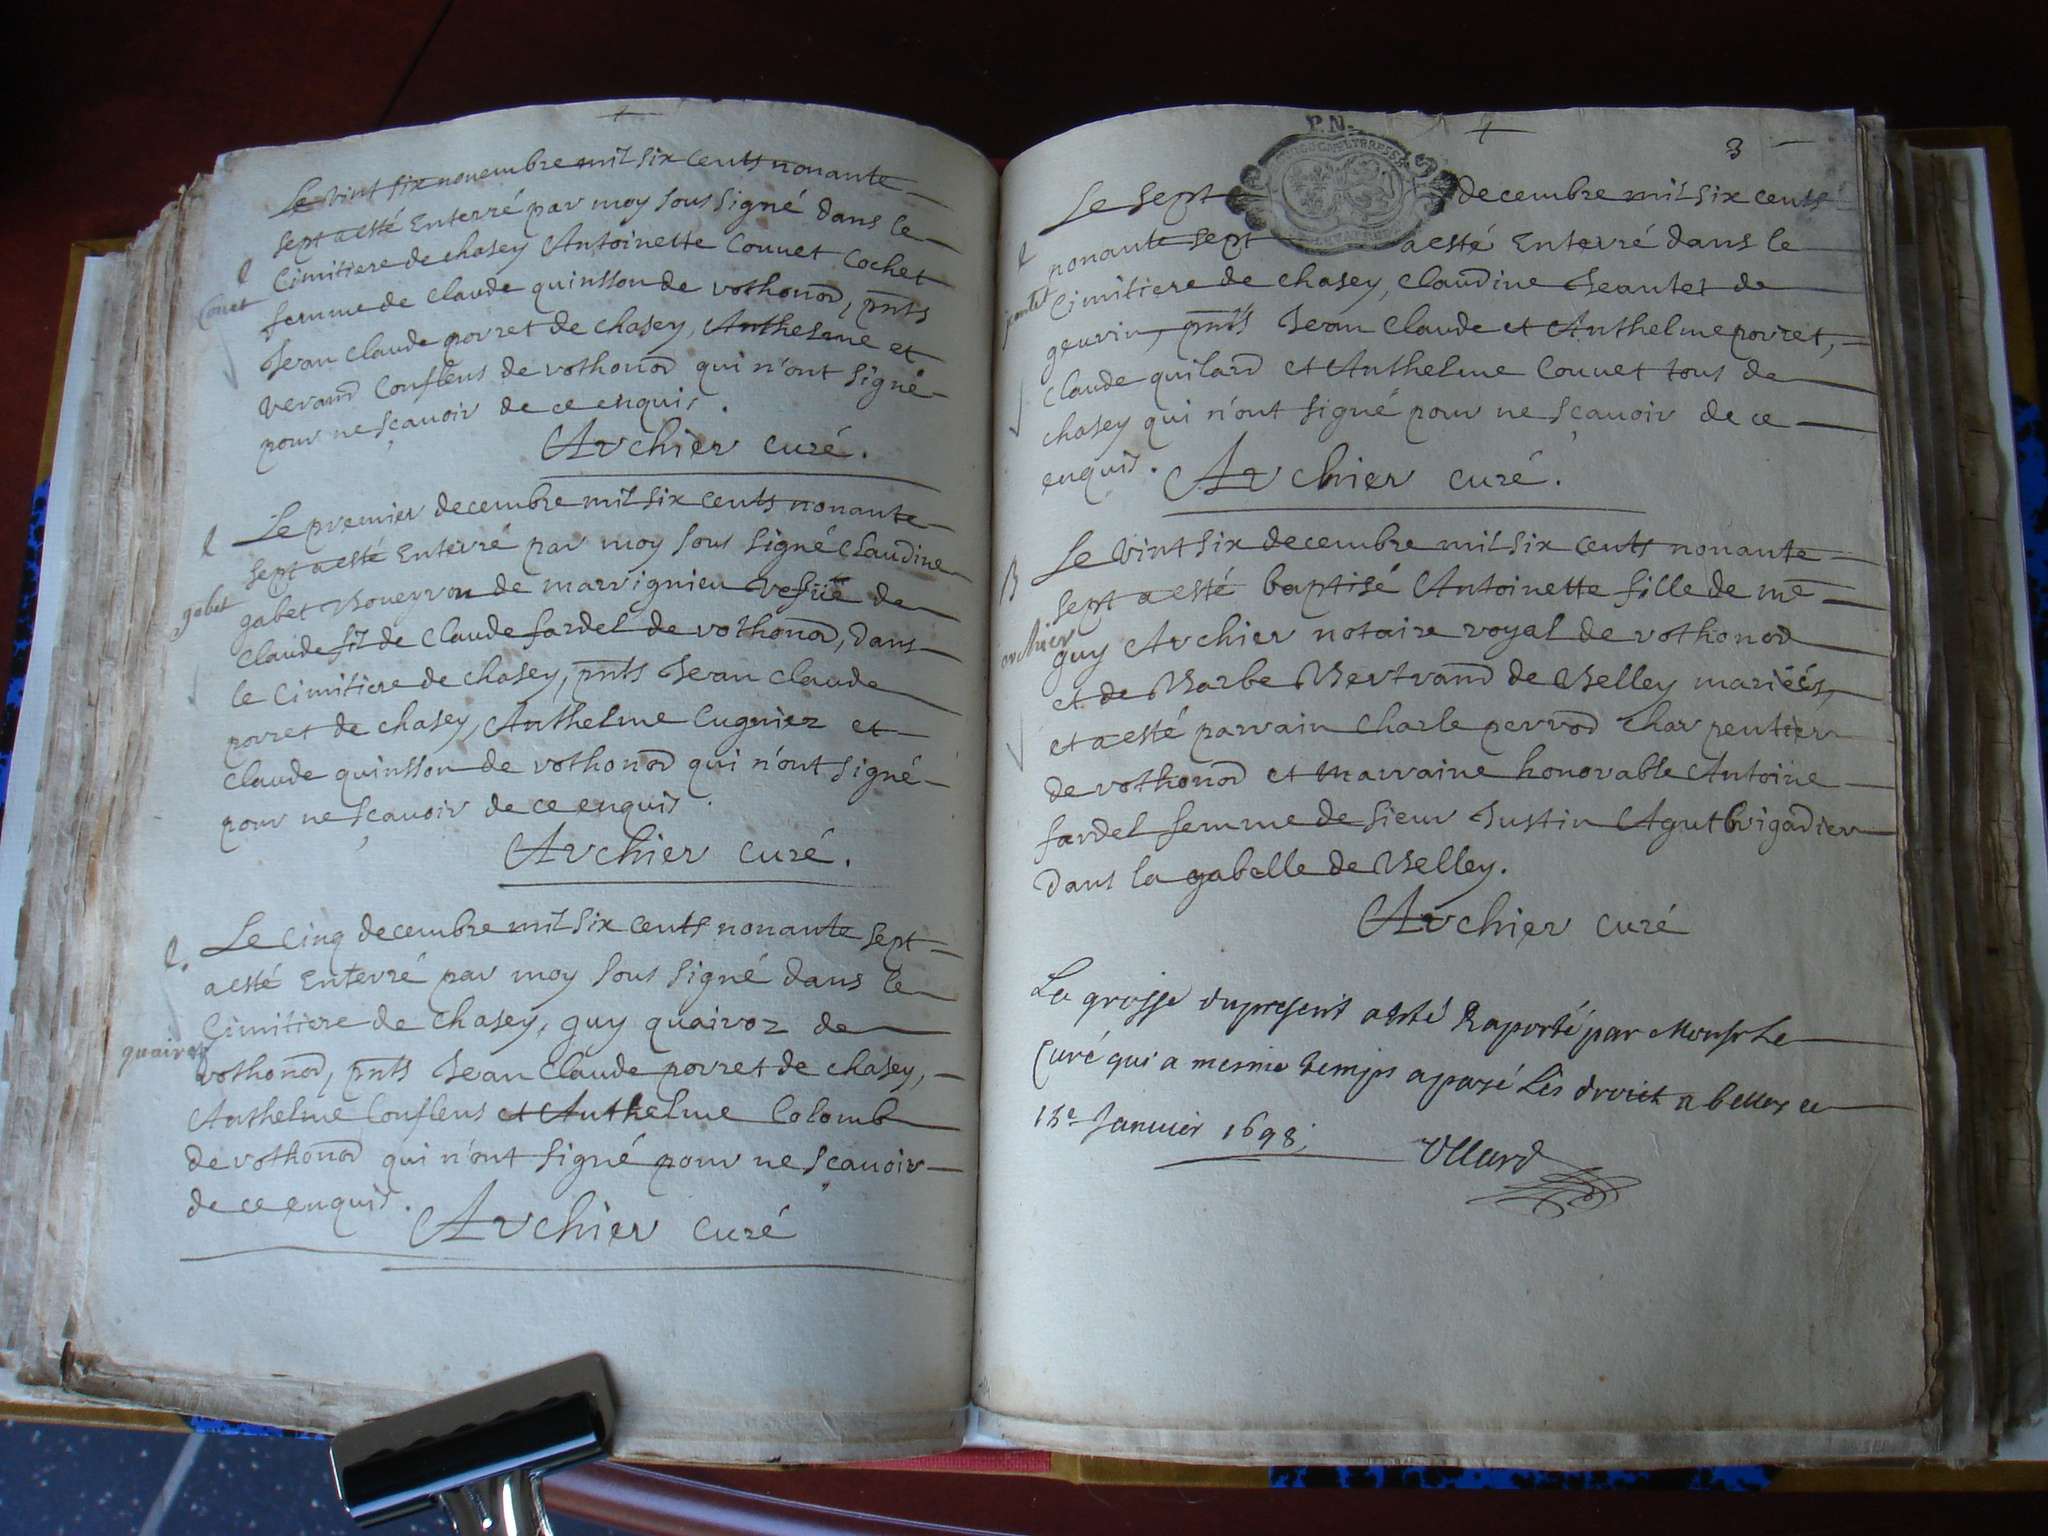 Le vint six novembre mil six cents nonante
sept a esté Enterré par moy sous signé dans le
Cimitiere de chasey Antoinette Couvet Cochet
femme de claude quinsson de vothonod, pnts
Jean claude porret de chasey, Anthelme et
verand Conflens de vothonod qui n'ont signé
pour ne sçavoir de ce enquis.
Archier curé.
Couet
Le premier decembre mil six cents nonante
sept a esté Enterré par moy sous signé Claudine
gabet Boueyron de marrignieu vefüe de
claude fil de Claude fardel de vothonod, dans
le Cimitiere de chasey, pnts Jean Claude
porret de chasey, Anthelme Cugniez et
claude quinsson de vothonod qui n'ont signé
pour ne sçavoir de ce enquis.
Archier curé.
gabet
Le cinq decembre mil six cents nonante sept
a esté Enterré par moy sous signé dans le
Cimitiere de chasey, guy quairoz de
vothonod, pnts Jean Claude porret de chasey,
Anthelme Conflens et Anthelme Colomb
de vothonod qui n'ont signé pour ne sçavoir
de ce enquis.
Archier curé
quairoz
P.N.
3
Le sept decembre mil six cents
nonante sept a esté Enterré dans le
Cimitiere de chasey, claudine Jeantet de
gevrin, pnts Jean Claude et Anthelme porret,
claude quilard et Anthelme Couvet tous de
chasey qui n'ont signé pour ne sçavoir de ce
enquis. Archier curé.
jeantet
B
Le vint six decembre mil six cents nonante
sept a esté baptisé Antoinette fille de me
guy Archier notaire royal de vothonod
et de Barbe Bertrand de Belley mariéés,
et a esté parrain Charle perrod charpentier
de vothonod et marraine honorable Antoine
fardel femme de sieur Justin Agut brigadier
dans la gabelle de Belley.
Archier curé
archier
La grosse du present a esté Raporté par Monsr Le
Curé qui a mesme temps a payé Les droict a belley ce
15e Janvier 1698.
Ullard